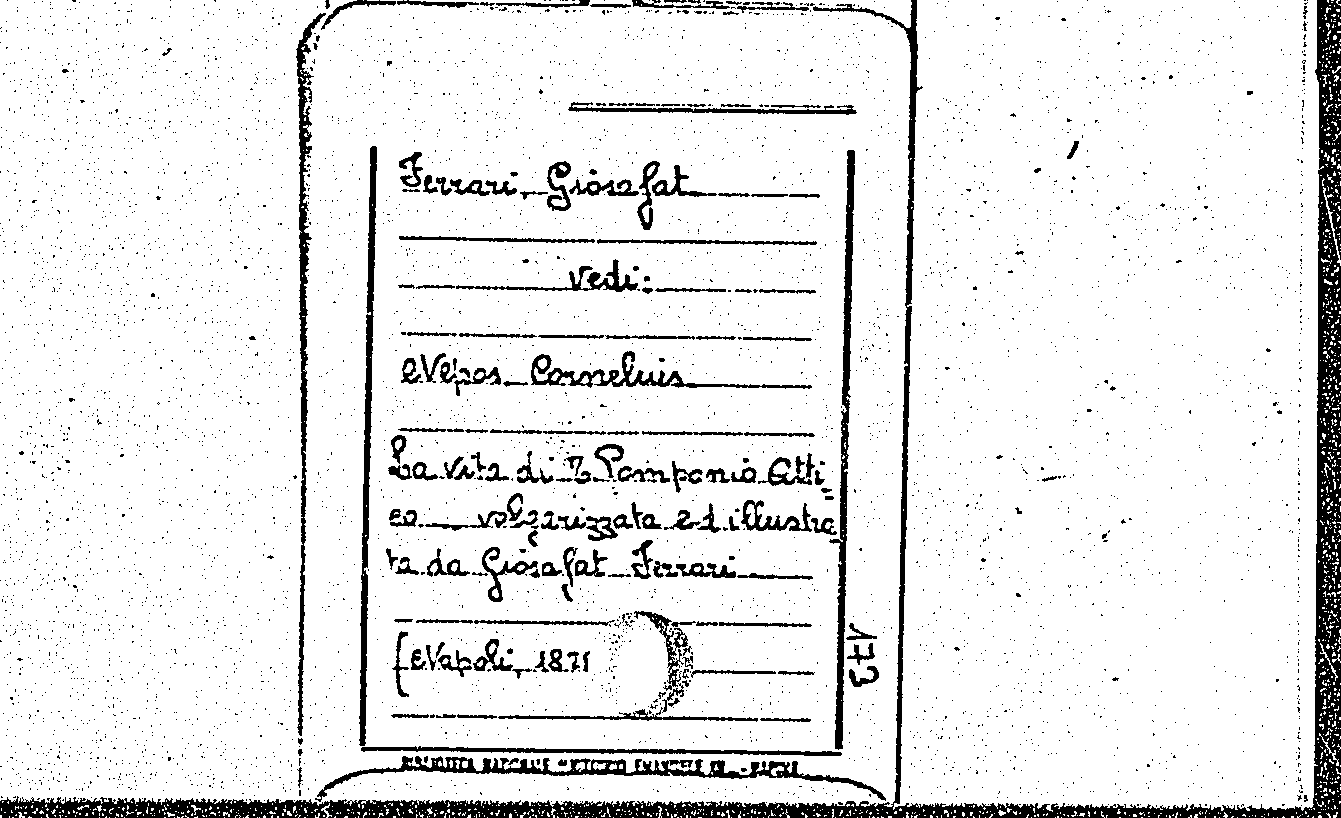 Ferrari, Giosafat
vedi:
Nepos Cornelius
La vita di T. Pomponio Atti=
co volgarizzata ed illustra=
ta da Giosafat Ferrari
[Napoli, 1871
173
BIBLIOTECA NAZIONALE "VITTORIO EMANUELE III" - NAPOLI